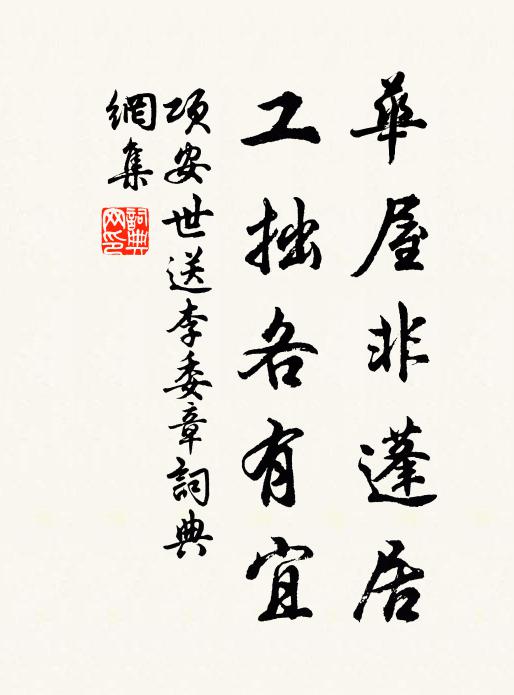 華屋非蓬居
工拙各有宜
項安世送李委章詞典
網集
詞典
网印